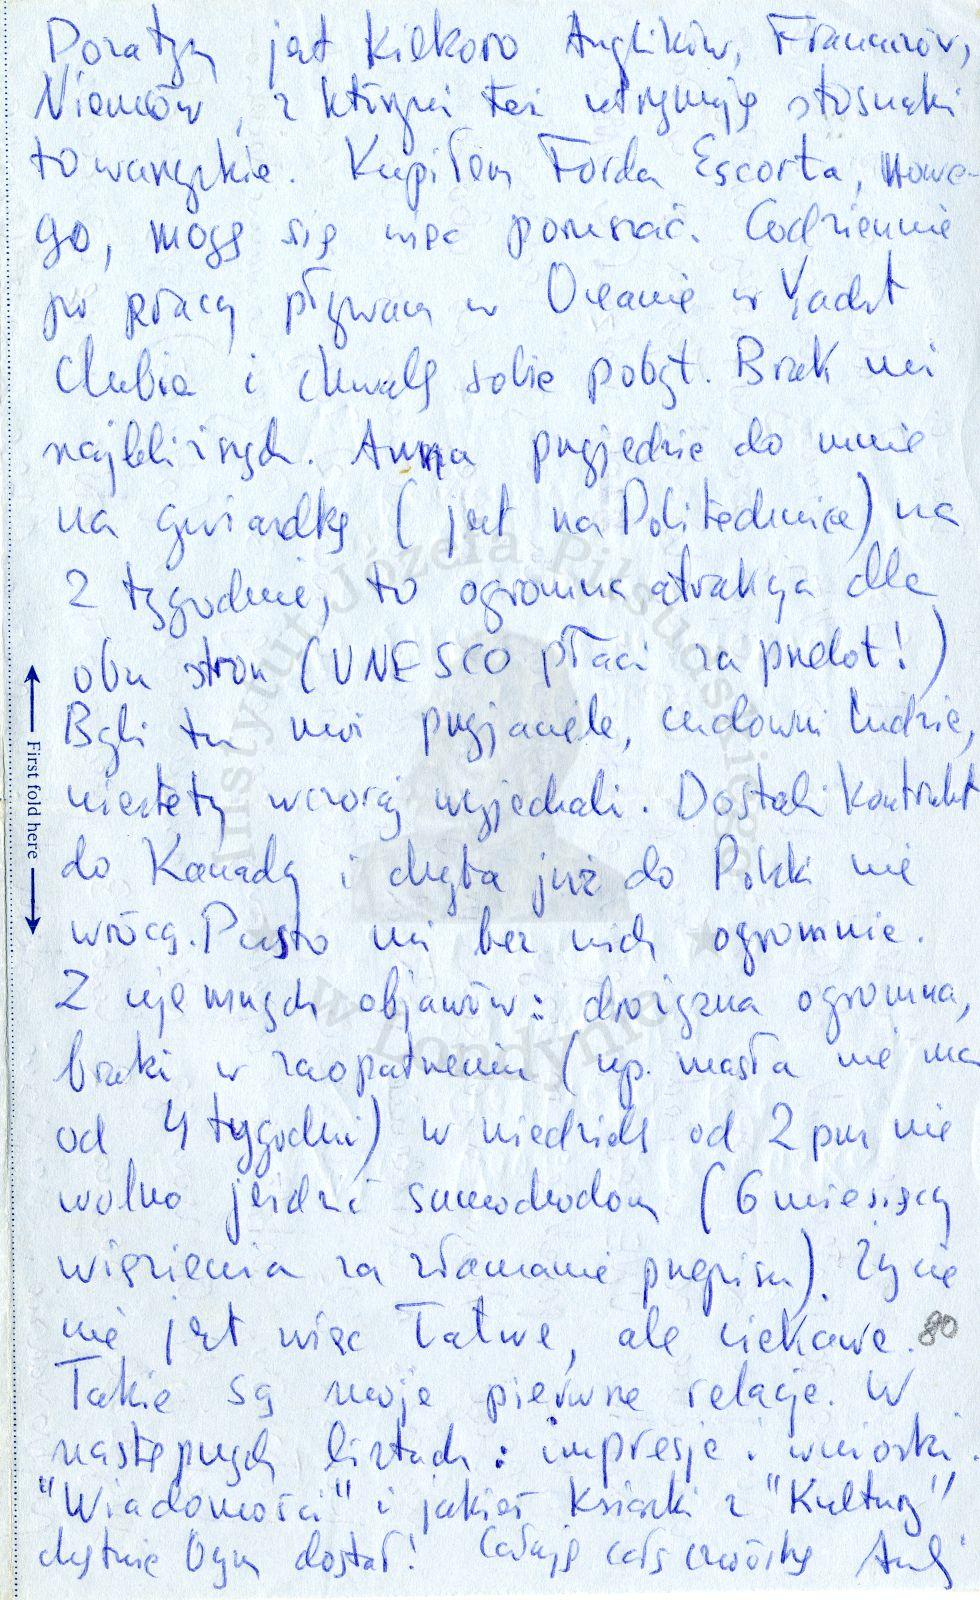 Pozatym jest kilkoro Anglików, Francuzów,
Niemców, z którymi też utrzymuję stosunki
towarzyskie. Kupiłem Forda Escorta, nowe-
go, mogę się więc poruszać. Codziennie
po pracy pływam w Oceanie w Yacht
Clubie i chwalę sobie pobyt. Brak mi
najbliższych. Anna przyjedzie do mnie
na gwiazdkę (jest na Politechnice) na
2 tygodnie, to ogromna atrakcja dla
obu stron (UNESCO płaci za przelot!)
Byli tu moi przyjaciele, cudowni ludzie,
niestety wczoraj wyjechali. Dostali kontrakt
do Kanady i chyba już do Polski nie
wrócą. Pusto mi bez nich ogromnie.
Z ujemnych objawów: drożyzna ogromna,
braki w zaopatrzeniu (np. masła nie ma
od 4 tygodni) w niedzielę od 2 pm nie
wolno jeździć samochodom (6 miesięcy
więzienia za złamanie przepisu). Życie
nie jest więc łatwe, ale ciekawe. 80
Takie są moje pierwsze relacje. W
następnych listach: impresje i wnioski.
"Wiadomości" i jakieś książki z "Kultury"
chętnie bym dostał! Całuję całą czwórkę
First fold here
Instytut Józefa Piłsudskiego
w Londynie